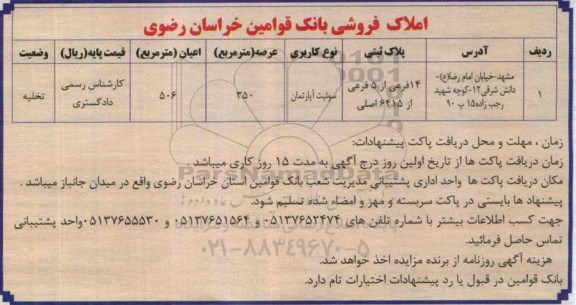 املاک فروشی بانک قوامین خراسان رضوی
ردیف آدرس پلاک ثبتی نوع کاربری عرصه(مترمربع) اعیان (مترمربع) قیمت پایه(ریال) وضعیت
۱ مشهد-خیابان امام رضا(ع)- دانش شرقی۱۲-کوچه شهید رجب زاده۱۵ پ ۹۰ ۱۴فرعی از ۵ فرعی از ۶۲۱۵ اصلی سوئیت آپارتمان ۳۵۰ ۵۰۶ کارشناس رسمی دادگستری تخلیه
زمان ، مهلت و محل دریافت پاکت پیشنهادات:
زمان دریافت پاکت ها از تاریخ اولین روز درج آگهی به مدت ۱۵ روز کاری میباشد .
مکان دریافت پاکت ها واحد اداری پشتیبانی مدیریت شعب بانک قوامین استان خراسان رضوی واقع در میدان جانباز میباشد .
پیشنهاد ها بایستی در پاکت سربسته و مهر و امضاء شده تسلیم شود.
جهت کسب اطلاعات بیشتر با شماره تلفن های ۰۵۱۳۷۶۵۲۴۷۴ و ۰۵۱۳۷۶۵۱۵۶۴ و ۰۵۱۳۷۶۵۵۵۳۰واحد پشتیبانی
تماس حاصل فرمائید.
هزینه آگهی روزنامه از برنده مزایده اخذ خواهد شد.
بانک قوامین در قبول یا رد پیشنهادات اختیارات تام دارد.
ParsNamadData
۰۲۱-۸۸۳۴۹۶۷۰-۵